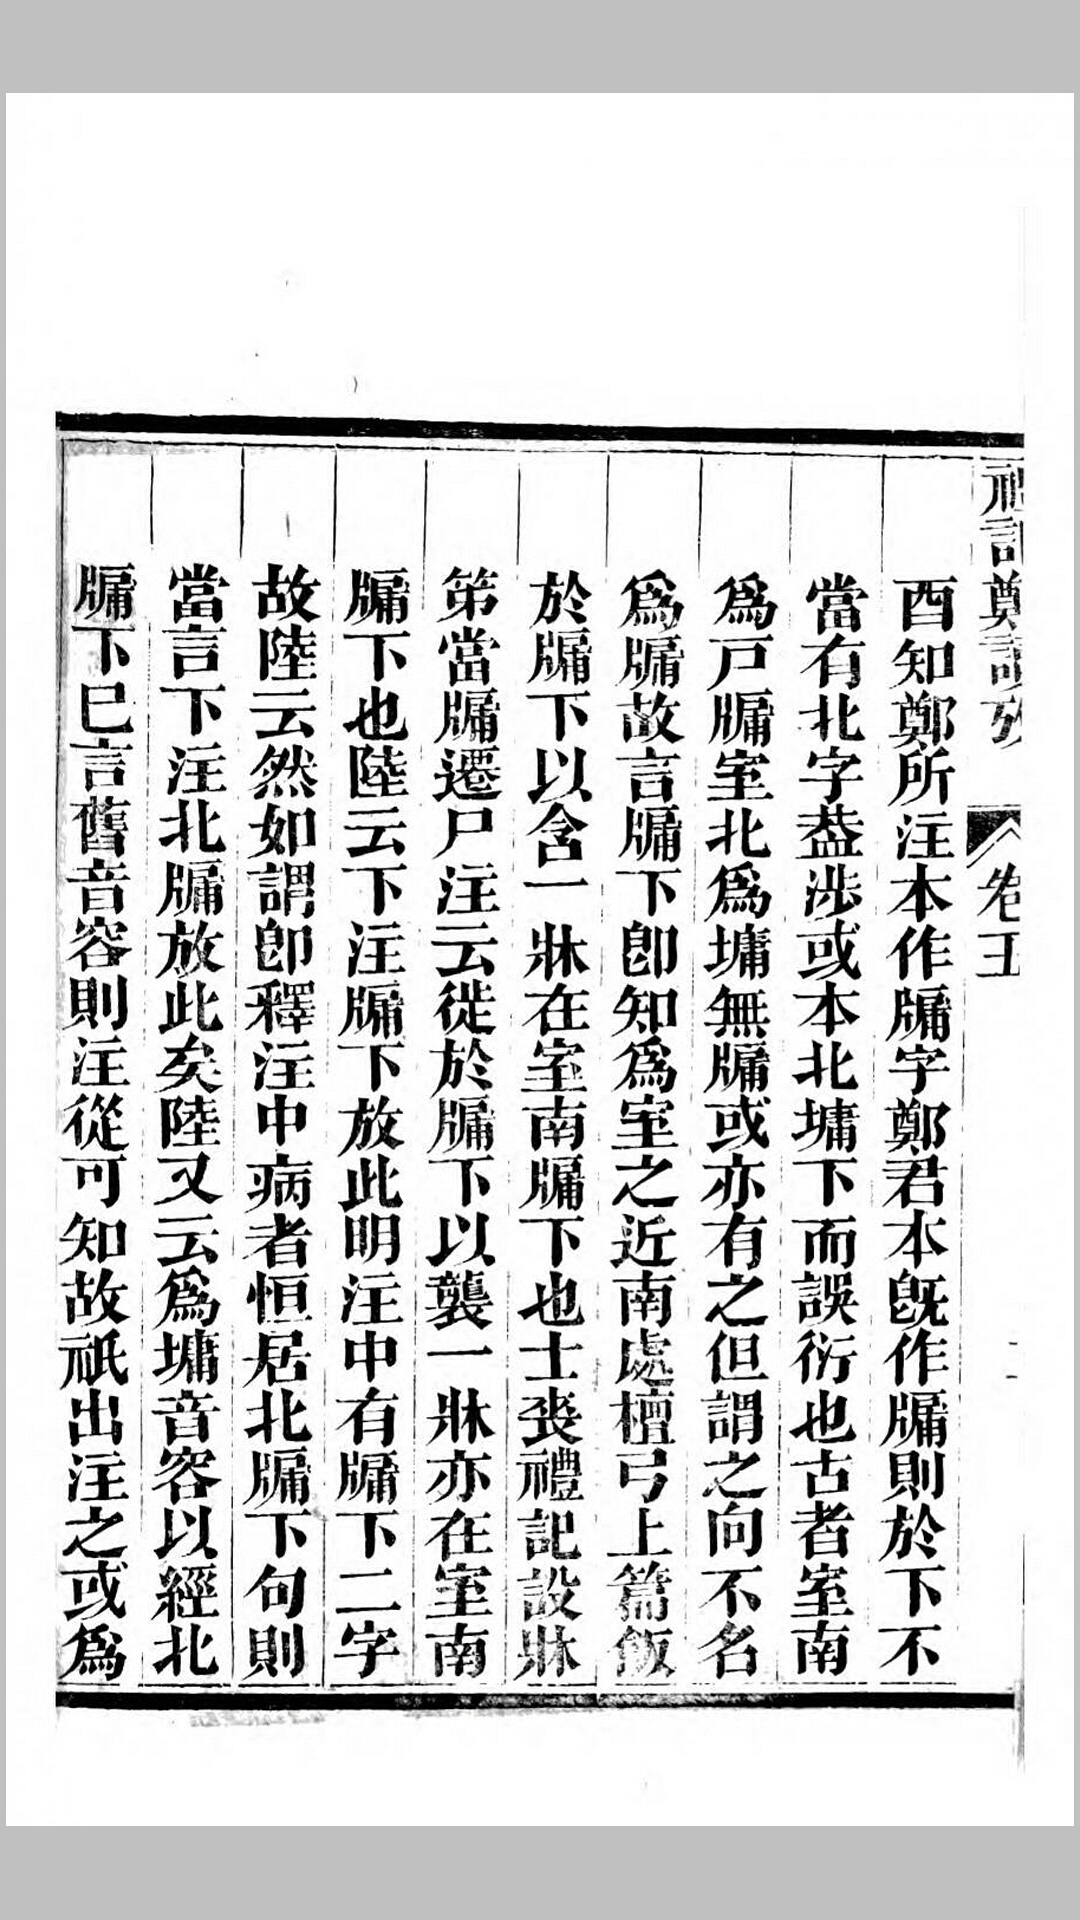 禮記鄭讀攷 卷五
酉知鄭所注本作牖字鄭君本旣作牖則於下不
當有北字葢涉或本北墉下而誤衍也古者室南
爲戸牖室北爲墉無牖或亦有之但謂之向不名
爲牖故言牖下卽知爲室之近南處檀弓上篇飯
於牖下以含一牀在室南牖下也士喪禮記設牀
第當牖遷尸注云徙於牖下以襲一牀亦在室南
牖下也陸云下注牖下放此明注中有牖下二字
故陸云然如謂卽釋注中病者恒居北牖下句則
當言下注北牖放此矣陸又云爲墉音容以經北
牖下巳言舊音容則注從可知故祇出注之或爲